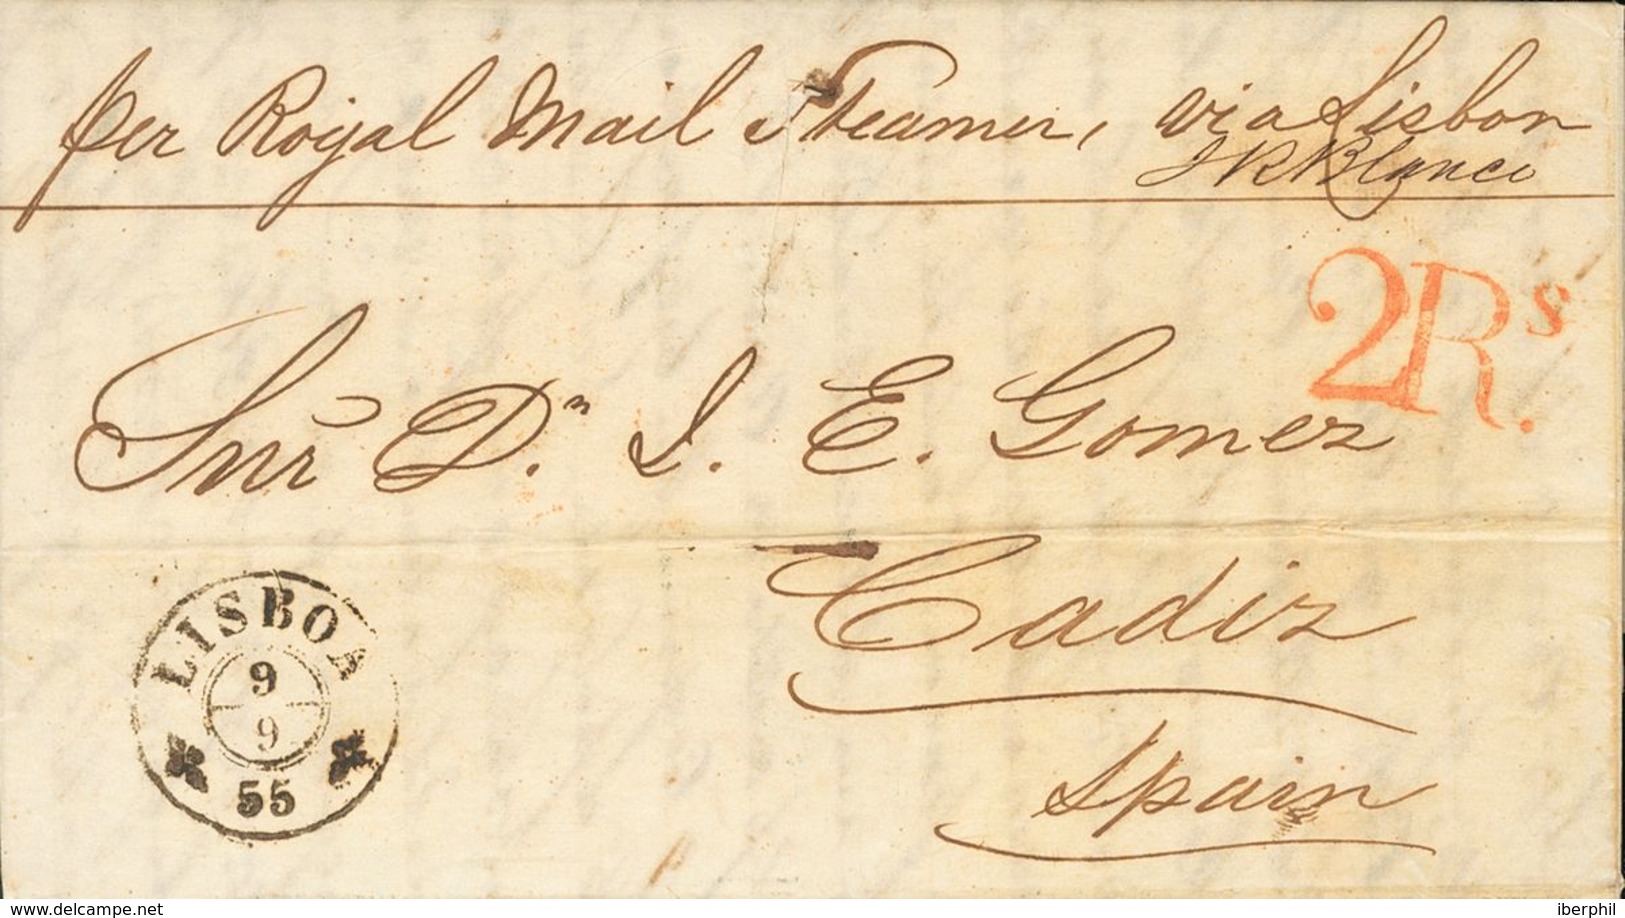 per Royal Mail Steamer, via Lisbon
JRBlanco
2Rs.
Snr Dn. J. E. Gomez
Cadiz
Spain
LISBOA
9
9
55
www.delcampe.net
iberphil